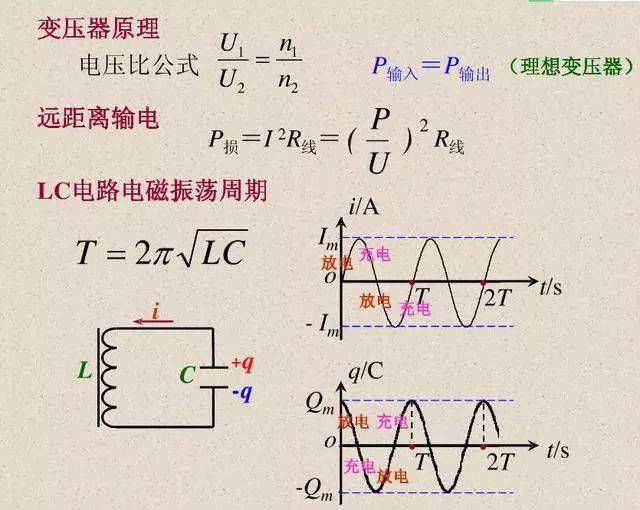 变压器原理
电压比公式 U₁/U₂ = n₁/n₂ P输入=P输出 (理想变压器)
远距离输电
P损=I²R线=(P/U)²R线
LC电路电磁振荡周期
T = 2π√LC
i/A
Iₘ
放电 充电
o
放电 充电
T 2T t/s
- Iₘ
i
L C +q
-q
q/C
Qₘ
放电 充电
o
充电 放电
T 2T t/s
-Qₘ